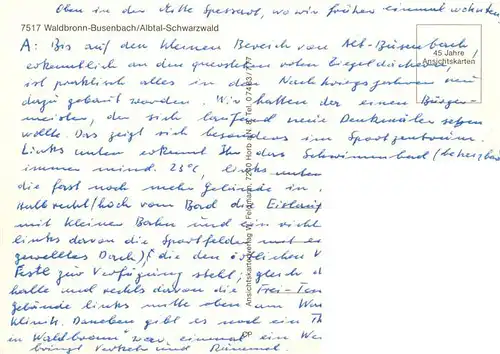 Oben in der Mitte Spessart, wo wir früher einmal wohnten
7517 Waldbronn-Busenbach/Albtal-Schwarzwald
45 Jahre
Ansichtskarten
A: Bis auf den kleinen Bereich von Alt-Busenbach,
erkenntlich an den roten Ziegeldächer,
ist praktisch alles in den Nachkriegsjahren neu
dazu gebaut worden. Wir hatten da einen Bürger-
meister, der sich laufend neue Denkmäler setzen
wollte. Das zeigt sich besonders im Sportzentrum.
Links unten erkennt Ihr das Schwimmbad (beheizbar
immer mind. 23°C, links unten
die fast noch mehr Gelände in
halbrecht hoch vom Bad die Eislauf
mit kleiner Bahn und ein
links davon die Sportfelder mit
gewelltes Dach), die den örtlichen V
Feste zur Verfügung steht, gleich d
halle und rechts davon die Frei-Ten
gelände links mitte oben am
Klinik. Daneben gibt es noch ein Th
in Waldbronn" war einmal ein
bringt Verkehr und
Ansichtskartenverlag W. Feldmann, 7240 Horb a. N. 1, Tel. 07483/777